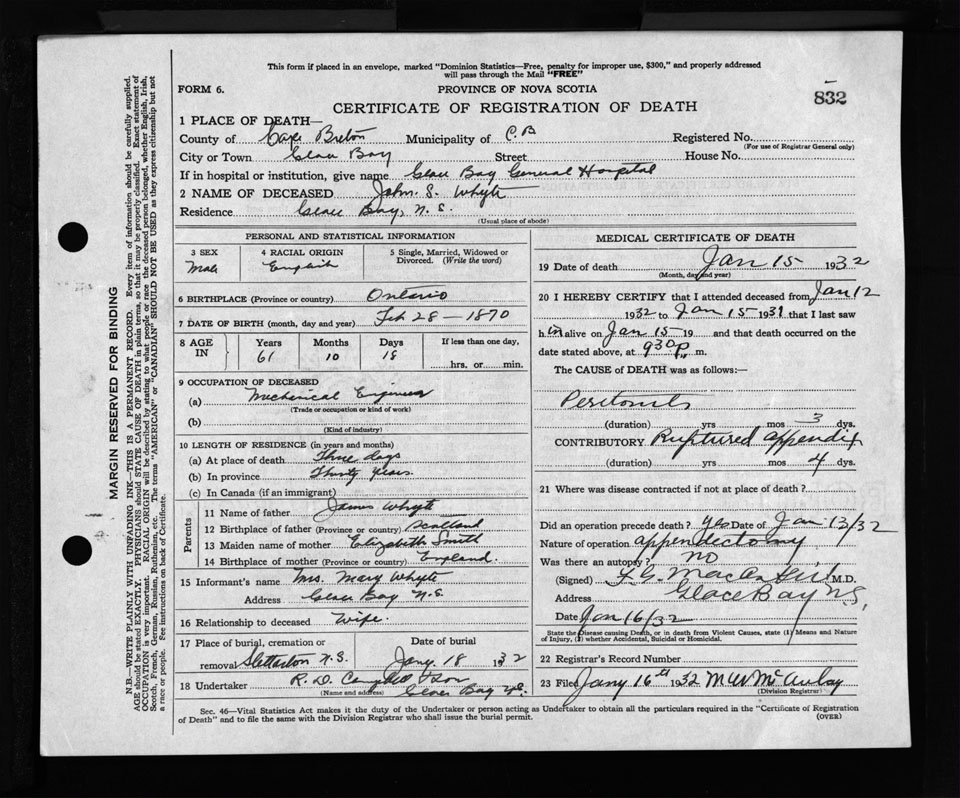 This form if placed in an envelope, marked "Dominion Statistics—Free, penalty for improper use, $300," and properly addressed
will pass through the Mail "FREE"
FORM 6. PROVINCE OF NOVA SCOTIA
832
CERTIFICATE OF REGISTRATION OF DEATH
1 PLACE OF DEATH—
County of Cape Breton Municipality of C.B Registered No.
(For use of Registrar General only)
City or Town Glace Bay Street House No.
If in hospital or institution, give name Glace Bay General Hospital
2 NAME OF DECEASED John. S. Whyte
Residence Glace Bay, N.S.
(Usual place of abode)
PERSONAL AND STATISTICAL INFORMATION
3 SEX 4 RACIAL ORIGIN 5 Single, Married, Widowed or
Divorced. (Write the word)
Male English
6 BIRTHPLACE (Province or country) Ontario
7 DATE OF BIRTH (month, day and year) Feb 28—1870
8 AGE IN Years Months Days If less than one day,
61 10 18 hrs. or min.
9 OCCUPATION OF DECEASED
(a) Mechanical Engineer
(Trade or occupation or kind of work)
(b)
(Kind of industry)
10 LENGTH OF RESIDENCE (in years and months)
(a) At place of death Three days
(b) In province Thirty years
(c) In Canada (if an immigrant)
Parents
11 Name of father James Whyte
12 Birthplace of father (Province or country) Scotland
13 Maiden name of mother Elizabeth Smith
14 Birthplace of mother (Province or country) England.
15 Informant's name Mrs. Mary Whyte
Address Glace Bay N.S.
16 Relationship to deceased Wife.
17 Place of burial, cremation or Date of burial
removal Stellarton N.S. Jany. 18 1932
18 Undertaker R. D. Campbell & Son
(Name and address) Glace Bay N.S.
MEDICAL CERTIFICATE OF DEATH
19 Date of death Jan 15 1932
(Month, day and year)
20 I HEREBY CERTIFY that I attended deceased from Jan 12
1932 to Jan 15 1931 that I last saw
him alive on Jan 15 19 and that death occurred on the
date stated above, at 930 p. m.
The CAUSE of DEATH was as follows:—
Peritonitis
(duration) yrs mos 3 dys.
CONTRIBUTORY Ruptured appendix
(duration) yrs mos 4 dys.
21 Where was disease contracted if not at place of death?
Did an operation precede death? Yes Date of Jan 13/32
Nature of operation appendectomy
Was there an autopsy? no
(Signed) M.D.
Address Glace Bay N.S,
Date Jan 16/32
State the Disease causing Death, or in death from Violent Causes, state (1) Means and Nature
of Injury, (2) whether Accidental, Suicidal or Homicidal.
22 Registrar's Record Number
23 Filed Jany 16th 1932 M W McAulay
(Division Registrar)
Sec. 46—Vital Statistics Act makes it the duty of the Undertaker or person acting as Undertaker to obtain all the particulars required in the "Certificate of Registration
of Death" and to file the same with the Division Registrar who shall issue the burial permit. (OVER)
MARGIN RESERVED FOR BINDING
N.B.—WRITE PLAINLY WITH UNFADING INK—THIS IS A PERMANENT RECORD. Every item of information should be carefully supplied.
AGE should be stated EXACTLY. PHYSICIANS should STATE CAUSE OF DEATH in plain terms, so that it may be properly classified. Exact statement of
OCCUPATION is very important. RACIAL ORIGIN will be described by stating to what people or race the deceased person belonged, whether English, Irish,
Scotch, French, German, Russian, Ruthenian, etc. The terms "AMERICAN" or "CANADIAN" SHOULD NOT BE USED as they express citizenship but not
a race or people. See instructions on back of Certificate.